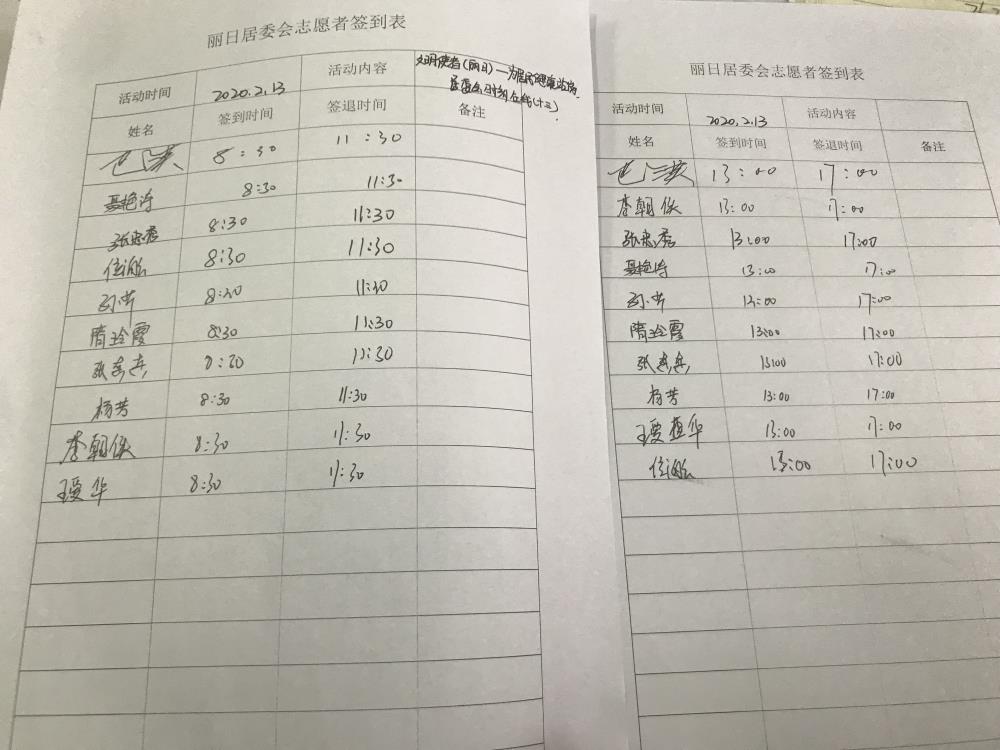 丽日居委会志愿者签到表
活动时间 2020.2.13 活动内容 文明使者(丽日)—为居民
姓名 签到时间 签退时间 备注
8:30 11:30
聂艳涛 8:30 11:30
张忠秀 8:30 11:30
8:30 11:30
8:30 11:30
隋玲霞 8:30 11:30
张莲 8:30 11:30
杨芳 8:30 11:30
李朝侠 8:30 11:30
王爱华 8:30 11:30
丽日居委会志愿者签到表
活动时间 2020.2.13 活动内容
姓名 签到时间 签退时间 备注
13:00 17:00
李朝侠 13:00 17:00
张忠秀 13:00 17:00
聂艳涛 13:00 17:00
13:00 17:00
隋玲霞 13:00 17:00
张莲 13:00 17:00
杨芳 13:00 17:00
王爱华 13:00 17:00
13:00 17:00